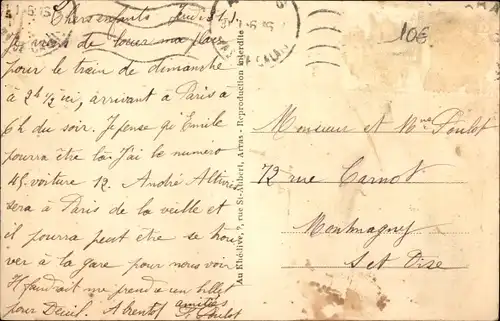 Chers enfants Jeudi
Je viens de louer ma place
pour le train de dimanche
à 2h 1/2 ici, arrivant à Paris à
6h du soir. Je pense qu'Emile
pourra être là. J'ai le numéro
45. voiture 12. André
sera à Paris de la veille et
il pourra peut être se trou
ver à la gare pour nous voir
Il faudrait me prendre un billet
pour Deuil. A bientôt amitiés
Au Khédive, 7, rue St-Aubert, Arras - Reproduction interdite
10€
Monsieur et Mme Poulot
72 rue Carnot
Montmagny
S et Oise